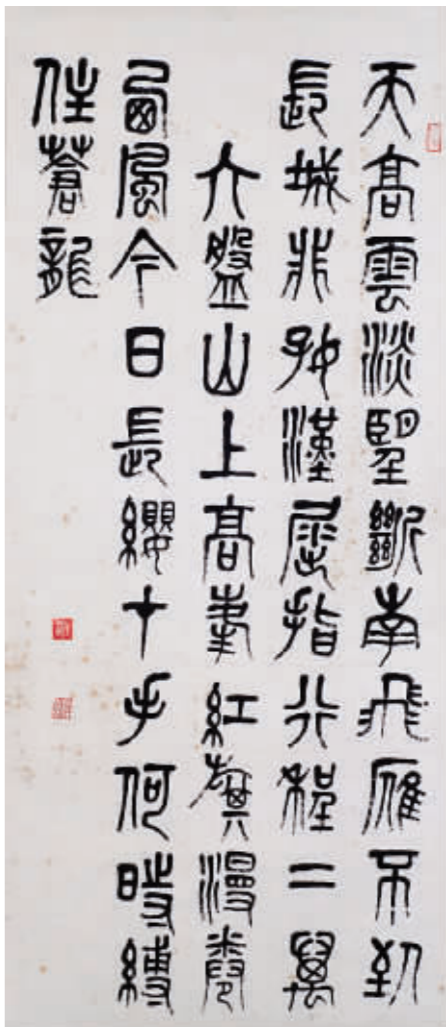 天高雲淡望斷南飛雁不到
長城非好漢屈指行程二萬
六盤山上高峯紅旗漫卷
西風今日長纓在手何時縛
住蒼龍